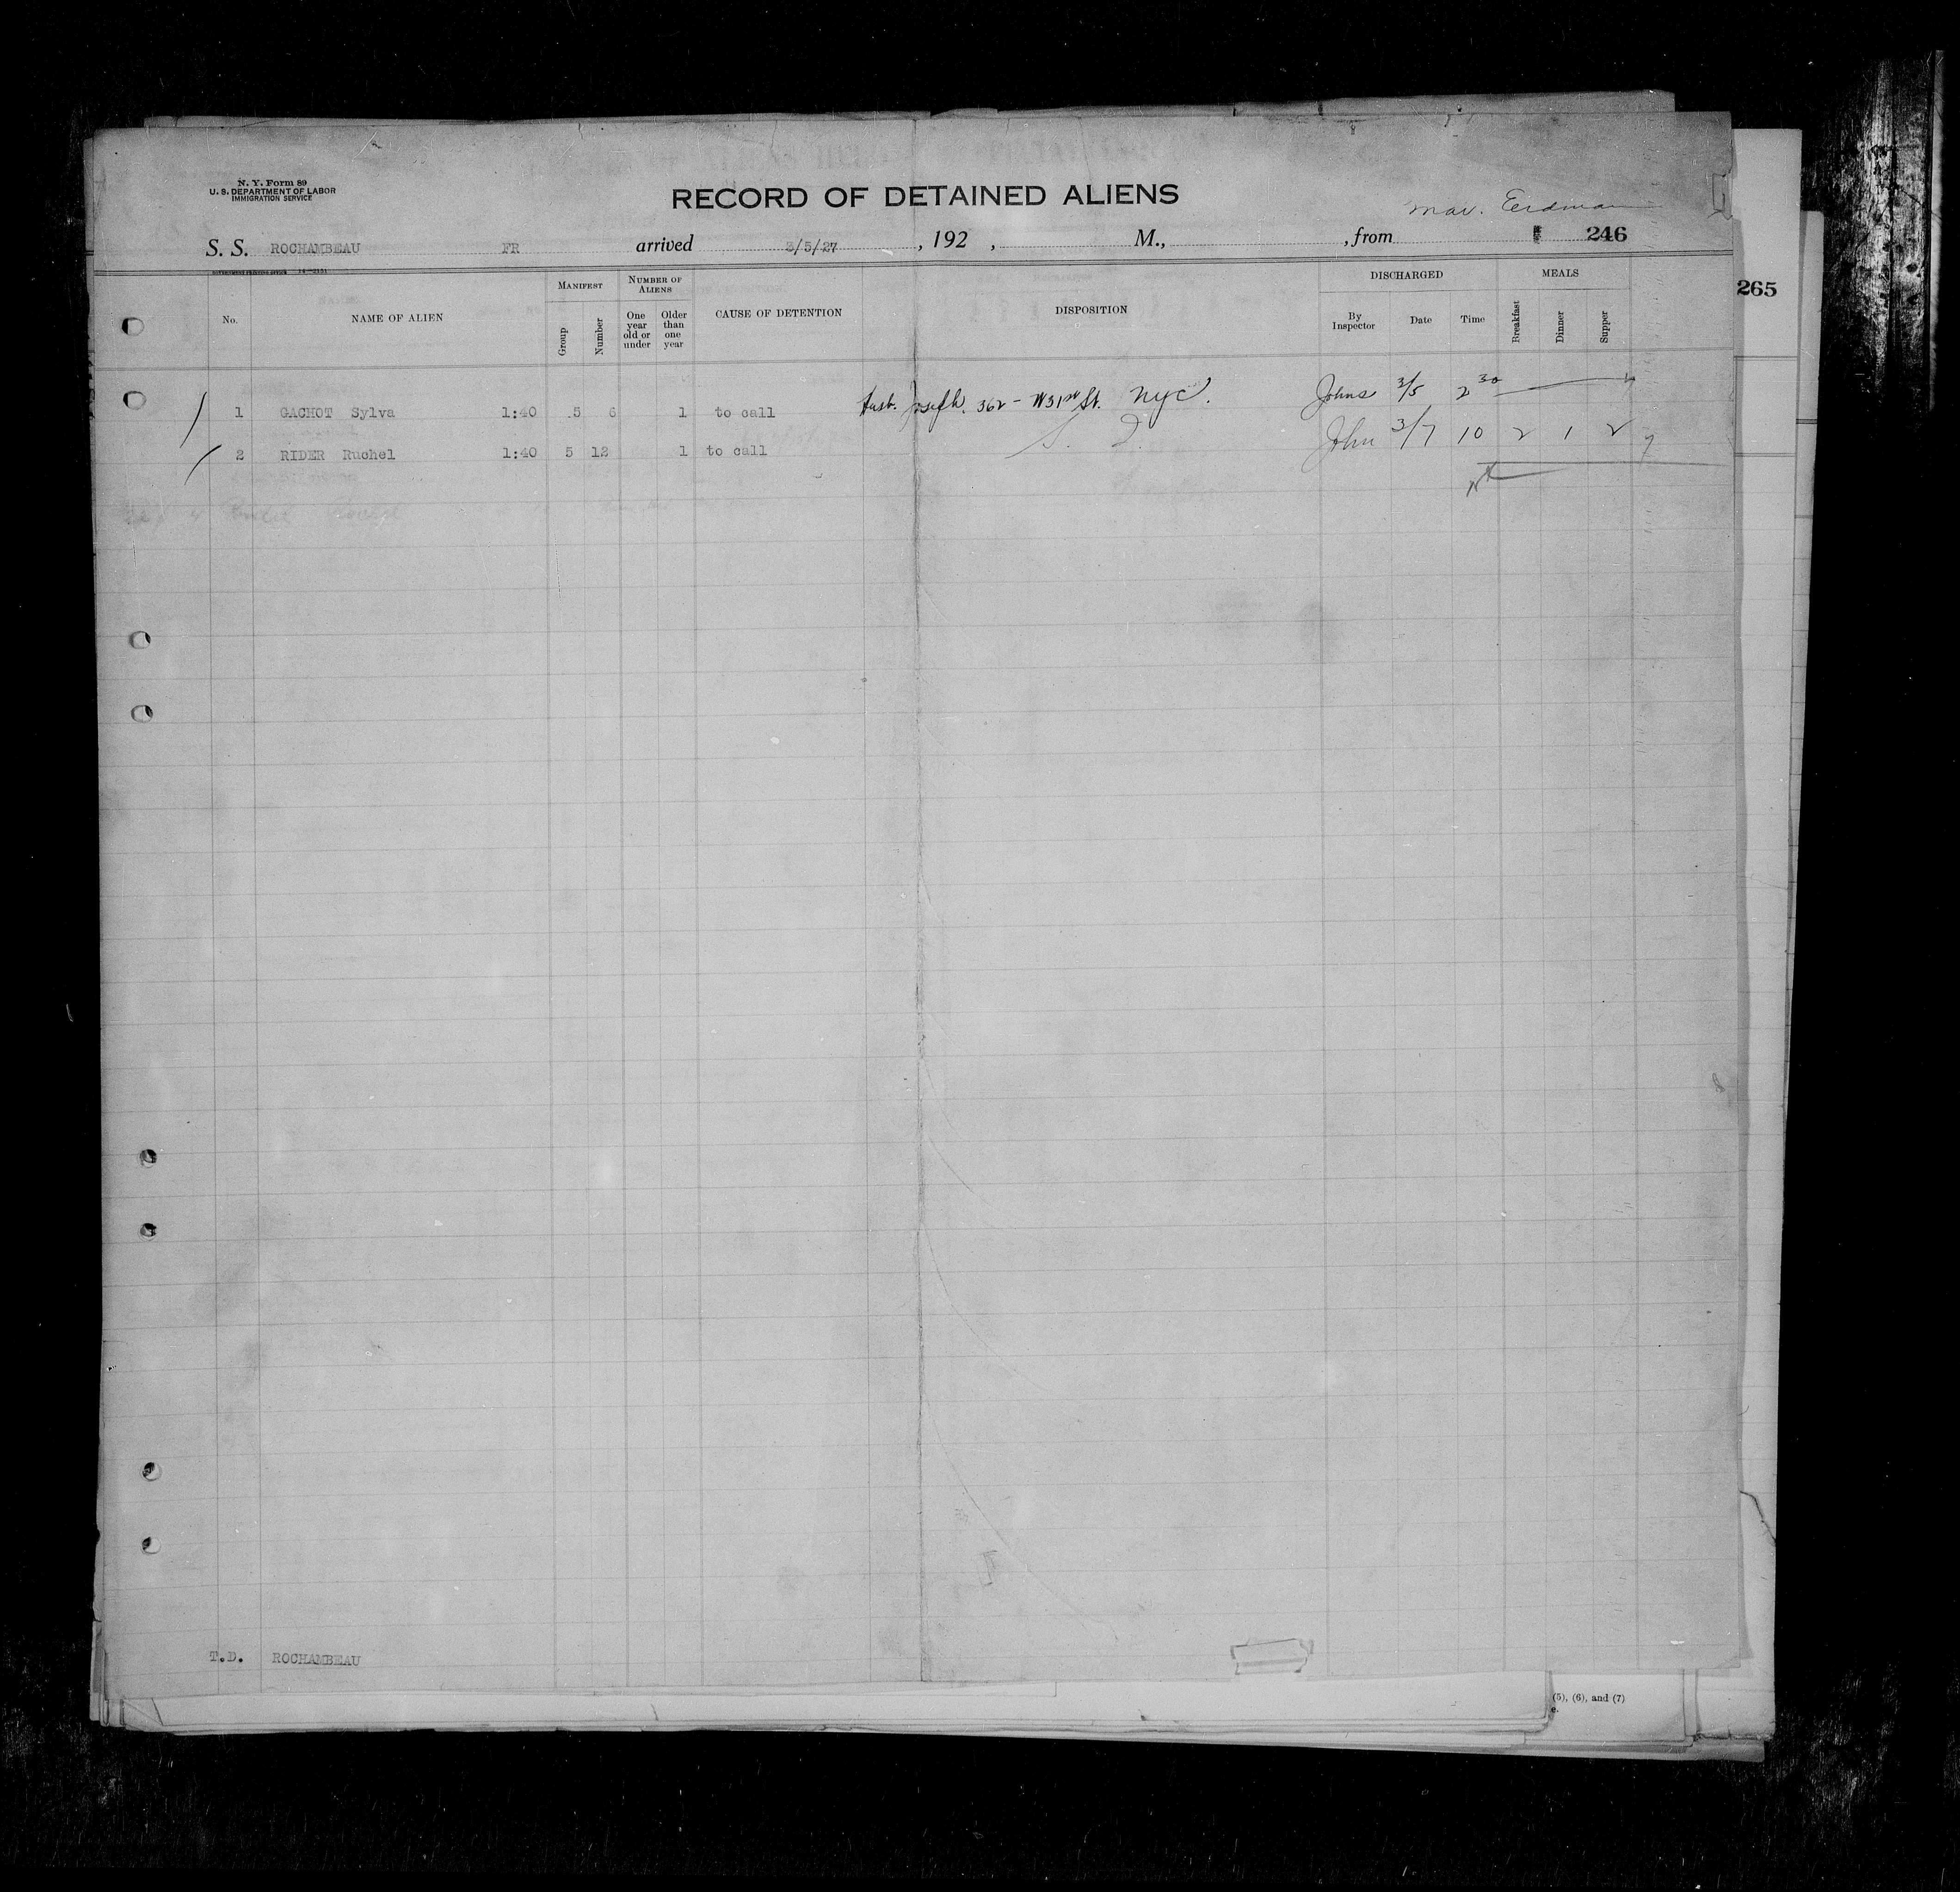 N. Y. Form 89
U. S. DEPARTMENT OF LABOR
IMMIGRATION SERVICE
RECORD OF DETAINED ALIENS
Erdman
S. S. ROCHAMBEAU FR arrived 3/5/27, 192 , M., , from 246
265
No. NAME OF ALIEN MANIFEST Group Number NUMBER OF ALIENS One year old or under Older than one year CAUSE OF DETENTION DISPOSITION DISCHARGED By Inspector Date Time MEALS Breakfast Dinner Supper
1 GACHOT Sylva 1:40 5 6 1 to call husb. Joseph. 362 - W31st St. NYC. Johns 3/5 2 30
2 RIDER Ruchel 1:40 5 12 1 to call S. I. John 3/7 10 2 1 2
T.D. ROCHAMBEAU
(5), (6), and (7)
e.